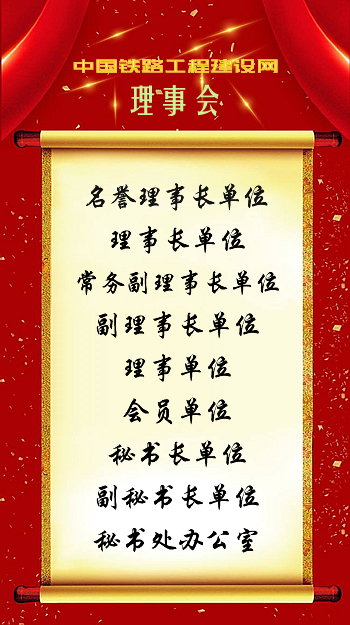 中国铁路工程建设网
理事会
名誉理事长单位
理事长单位
常务副理事长单位
副理事长单位
理事单位
会员单位
秘书长单位
副秘书长单位
秘书处办公室